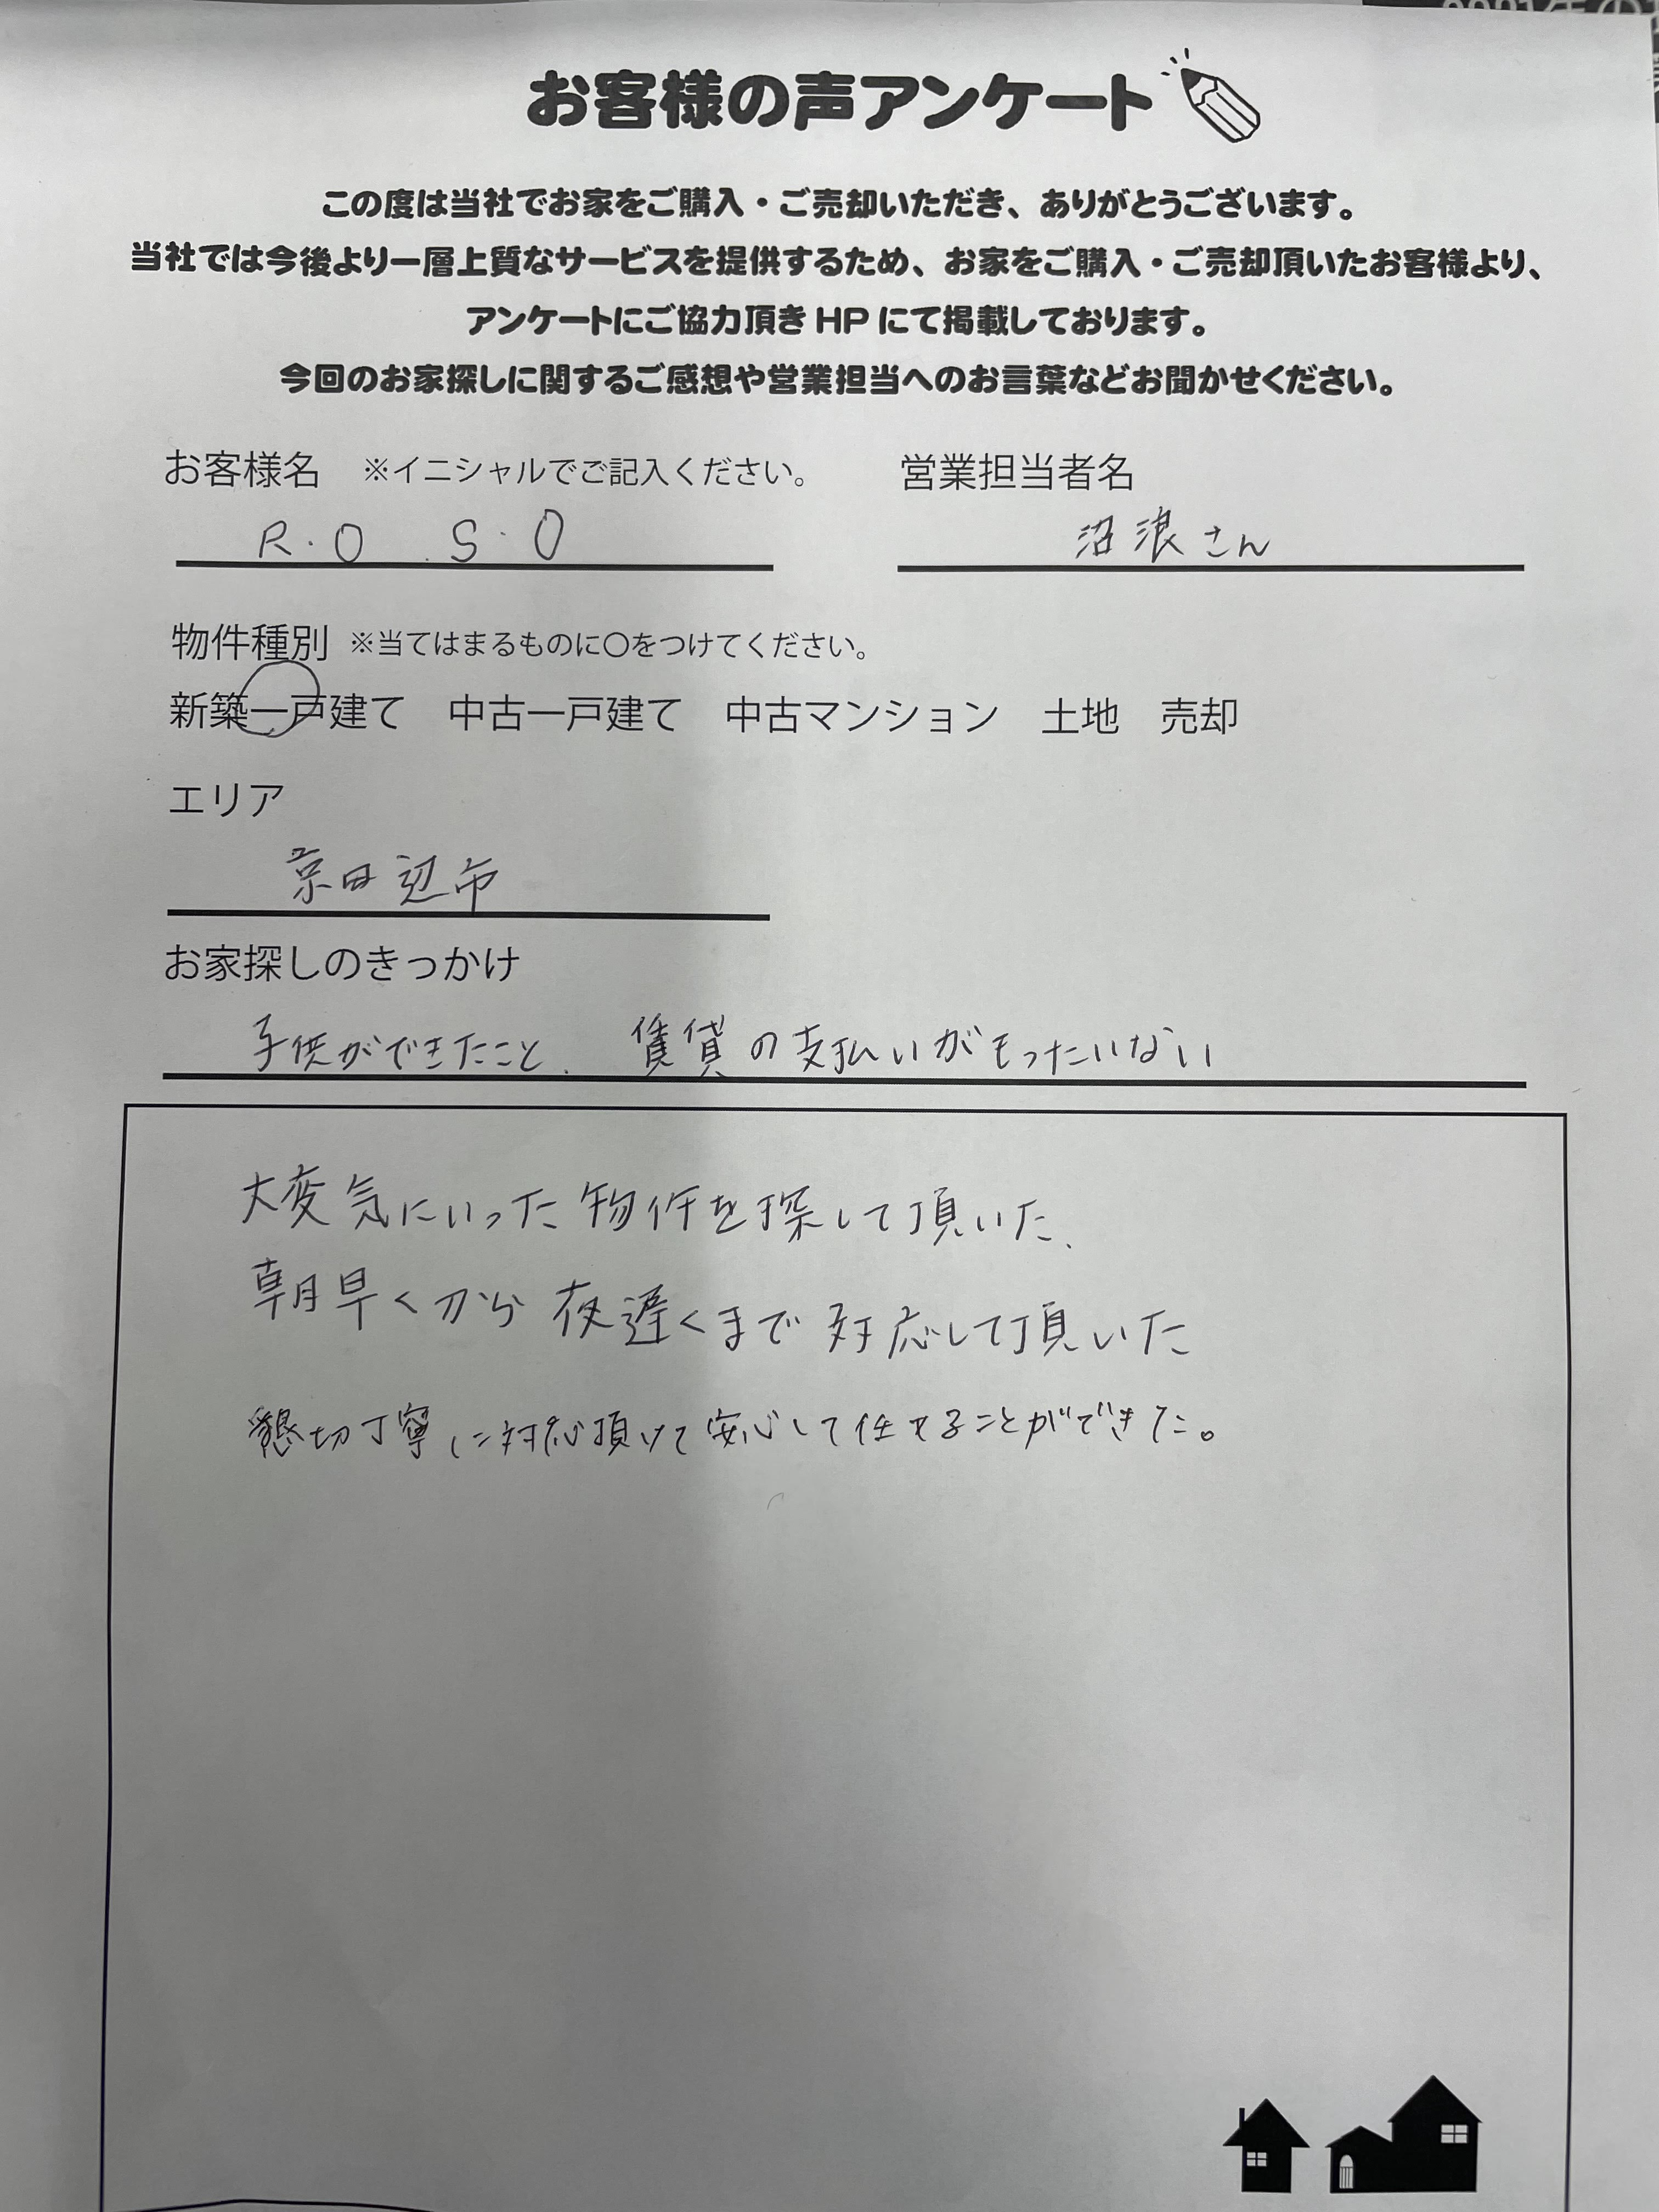 お客様の声アンケート
この度は当社でお家をご購入・ご売却いただき、ありがとうございます。
当社では今後より一層上質なサービスを提供するため、お家をご購入・ご売却頂いたお客様より、
アンケートにご協力頂き HP にて掲載しております。
今回のお家探しに関するご感想や営業担当へのお言葉などお聞かせください。
お客様名 ※イニシャルでご記入ください。 営業担当者名
R・O S・O 沼浪さん
物件種別 ※当てはまるものに〇をつけてください。
新築一戸建て 中古一戸建て 中古マンション 土地 売却
エリア
京田辺市
お家探しのきっかけ
子供ができたこと、賃貸の支払いがもったいない
大変気にいった物件を探して頂いた、
朝早くから夜遅くまで対応して頂いた
懇切丁寧に対応頂けて安心して任せることができた。